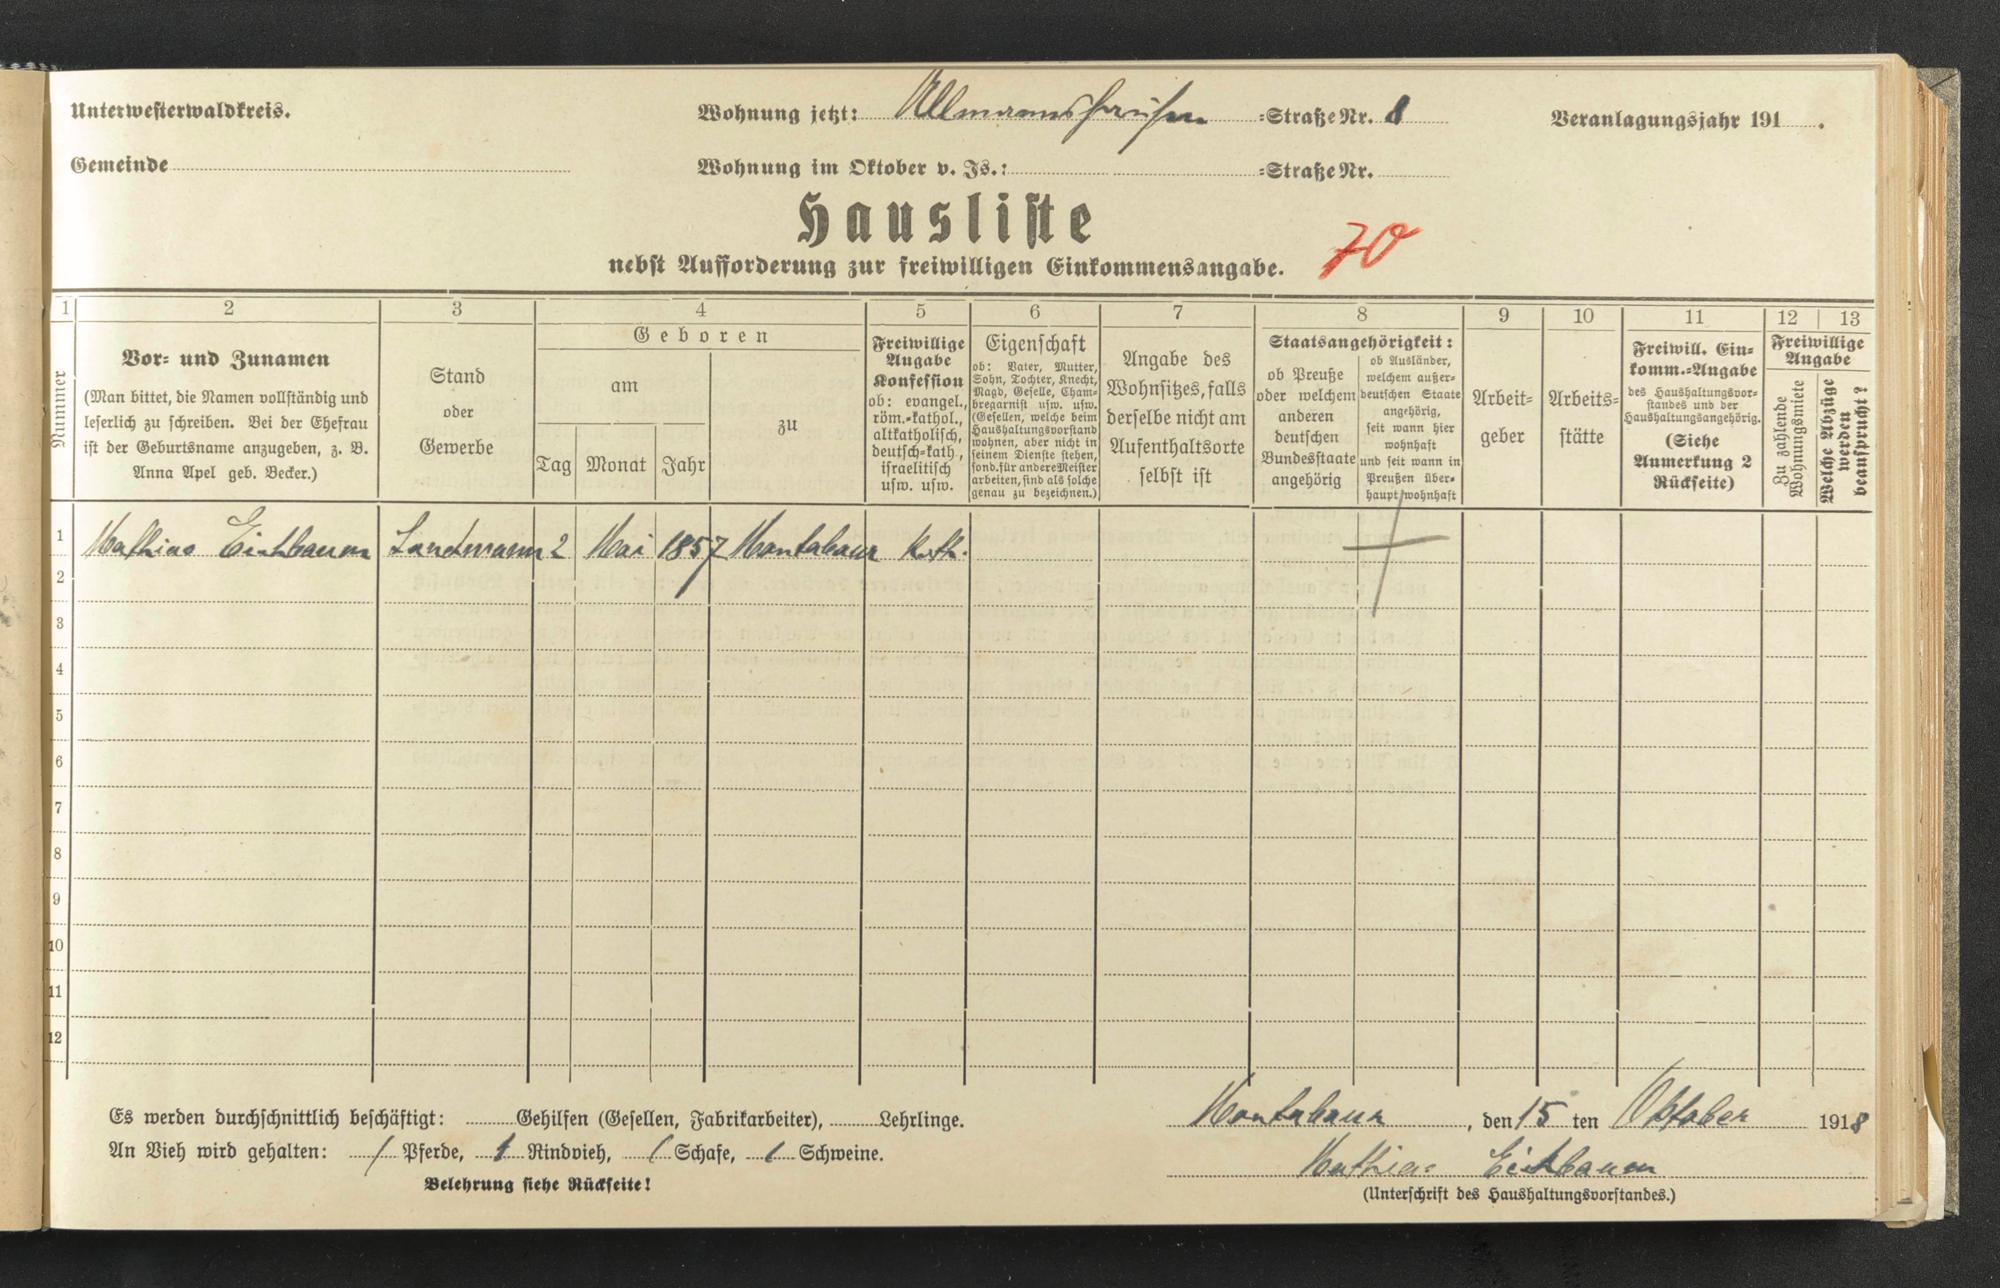 Unterwesterwaldkreis.
Wohnung jetzt: Allmannshausen =Straße Nr. 8
Veranlagungsjahr 191 .
Gemeinde
Wohnung im Oktober v. Js.: =Straße Nr.
Hausliste
70
nebst Aufforderung zur freiwilligen Einkommensangabe.
1 2 3 4 5 6 7 8 9 10 11 12 13
Nummer
Vor- und Zunamen
(Man bittet, die Namen vollständig und
leserlich zu schreiben. Bei der Ehefrau
ist der Geburtsname anzugeben, z. B.
Anna Apel geb. Becker.)
Stand
oder
Gewerbe
Geboren
am
Tag Monat Jahr
zu
Freiwillige
Angabe
Konfession
ob: evangel.,
röm.-kathol.,
altkatholisch,
deutsch-kath.,
israelitisch
usw. usw.
Eigenschaft
ob: Vater, Mutter,
Sohn, Tochter, Knecht,
Magd, Geselle, Cham-
bregarnist usw. usw.
(Gesellen, welche beim
Haushaltungsvorstand
wohnen, aber nicht in
seinem Dienste stehen,
sond. für andere Meister
arbeiten, sind als solche
genau zu bezeichnen.)
Angabe des
Wohnsitzes, falls
derselbe nicht am
Aufenthaltsorte
selbst ist
Staatsangehörigkeit:
ob Preuße
oder welchem
anderen
deutschen
Bundesstaate
angehörig
ob Ausländer,
welchem außer-
deutschen Staate
angehörig,
seit wann hier
wohnhaft
und seit wann in
Preußen über-
haupt wohnhaft
Arbeit-
geber
Arbeits-
stätte
Freiwill. Ein-
komm.-Angabe
des Haushaltungsvor-
standes und der
Haushaltungsangehörig.
(Siehe
Anmerkung 2
Rückseite)
Freiwillige
Angabe
Zu zahlende
Wohnungsmiete
Welche Abzüge
werden
beansprucht?
1 Mathias Eichbaum Landmann 2 Mai 1857 Montabaur Kath.
2
3
4
5
6
7
8
9
10
11
12
Es werden durchschnittlich beschäftigt: Gehilfen (Gesellen, Fabrikarbeiter), Lehrlinge.
An Vieh wird gehalten: / Pferde, 1 Rindvieh, / Schafe, / Schweine.
Belehrung siehe Rückseite!
Montabaur, den 15 ten Oktober 1918
Mathias Eichbaum
(Unterschrift des Haushaltungsvorstandes.)